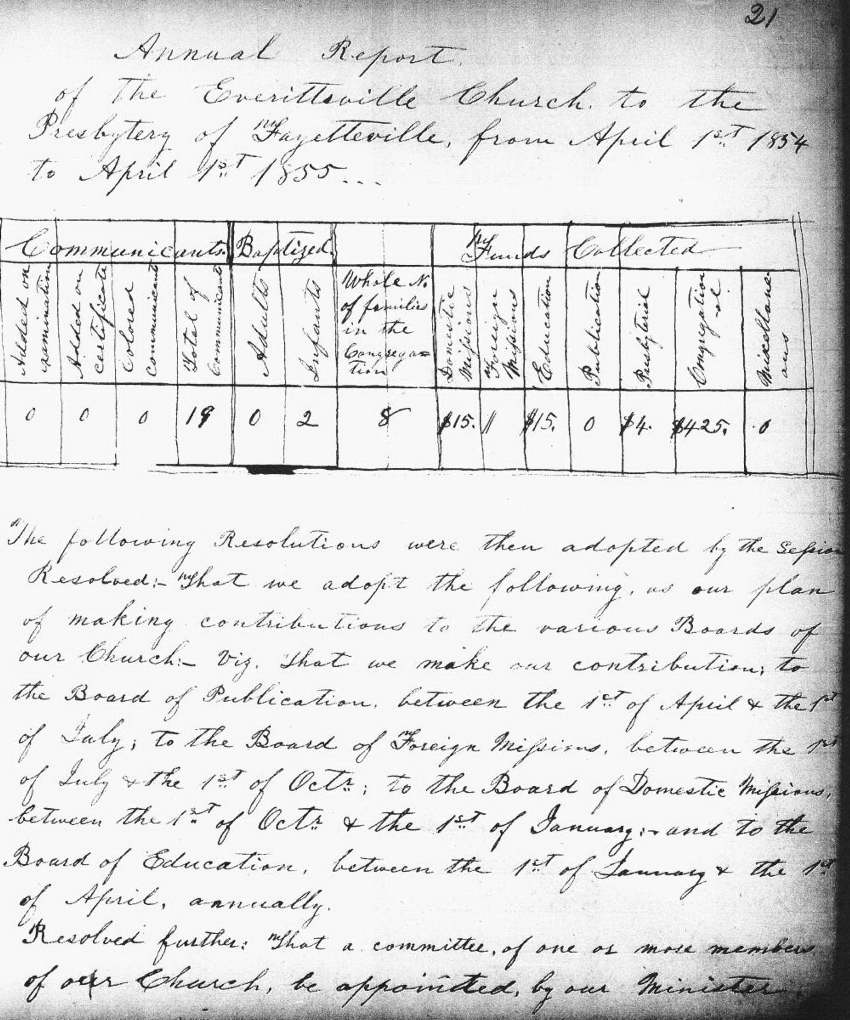 21
Annual Report.
of the Everittsville Church. to the
Presbytery of Fayetteville, from April 1st 1854
to April 1st 1855...
Communicants. Baptized. Funds Collected
Added on examination
Added on certificate
Colored communicants
Total of Communicants
Adults
Infants
Whole No.
of families
in the
Congrega=
tion
Domestic Missions
Foreign Missions
Education
Publication
Presbyterial
Congregation al.
Miscellane ous
0 0 0 19 0 2 8 $15. " $15. 0 $4. $425. 0
The following Resolutions were then adopted by the Session
Resolved:- That we adopt the following, as our plan
of making contributions to the various Boards of
our Church:- Viz. That we make our contribution; to
the Board of Publication, between the 1st of April & the 1st
of July; to the Board of Foreign Missions, between the 1st
of July & the 1st of Octr.; to the Board of Domestic Missions,
between the 1st of Octr. & the 1st of January:- and to the
Board of Education, between the 1st of January & the 1st
of April, annually.
Resolved further: That a committee, of one or more members
of our Church, be appointed, by our Minister,